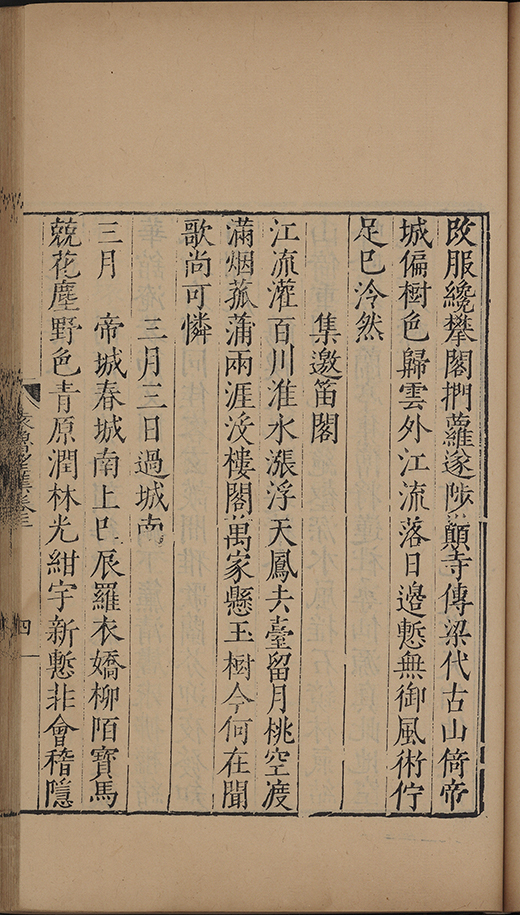 改服纔攀閣捫蘿遂陟巔寺傳梁代古山倚帝
城偏樹色歸雲外江流落日邊慙無御風術佇
足已泠然
集邀笛閣
江流灌百川淮水漲浮天鳳去臺留月桃空渡
滿烟菰蒲兩涯没樓閣萬家懸玉樹今何在聞
歌尚可憐
三月三日過城南
三月　帝城春城南上巳辰羅衣嬌柳陌寶馬
兢花塵野色青原潤林光紺宇新慙非會稽隱
袁魯望集卷三
四